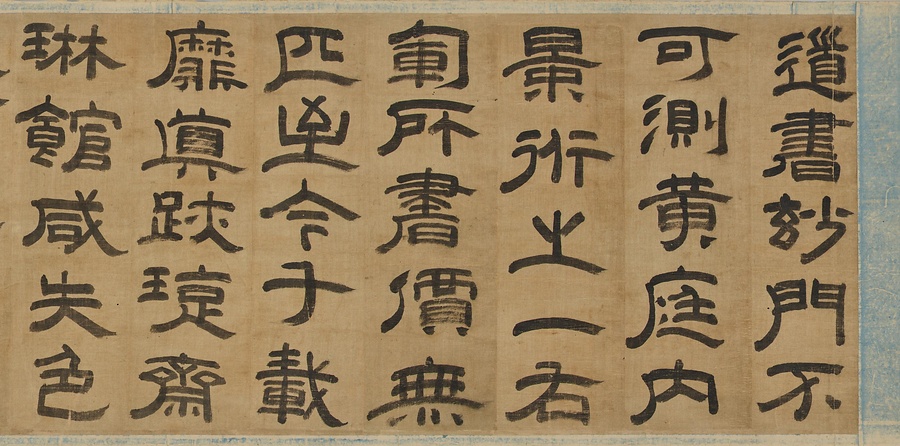 道書玅門不
可測黄庭内
景術之一右
軍所書價無
匹至今千載
靡眞跡齋
琳館咸失色